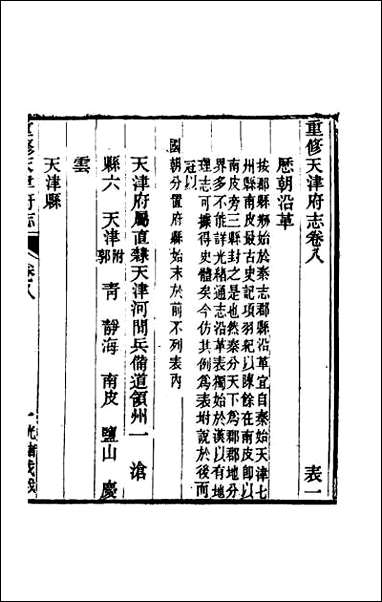 重修天津府志卷八 表一
歷朝沿革
按郡縣剏始於秦志郡縣沿革宜自秦始天津七
州縣南皮最古史記項羽紀以陳餘在南皮卽以
南皮旁三縣封之是也然秦分天下爲郡郡地分
界多不能詳光緒通志沿革表獨始於漢以有地
理志可據得史體矣今仿其例爲表坿說於後而
冠以
國朝分置府縣始末於前不列表內
天津府屬直隸天津河間兵備道領州一 滄
縣六 天津附郭 青 靜海 南皮 鹽山 慶
雲
天津縣
重修天津府志 卷八 一